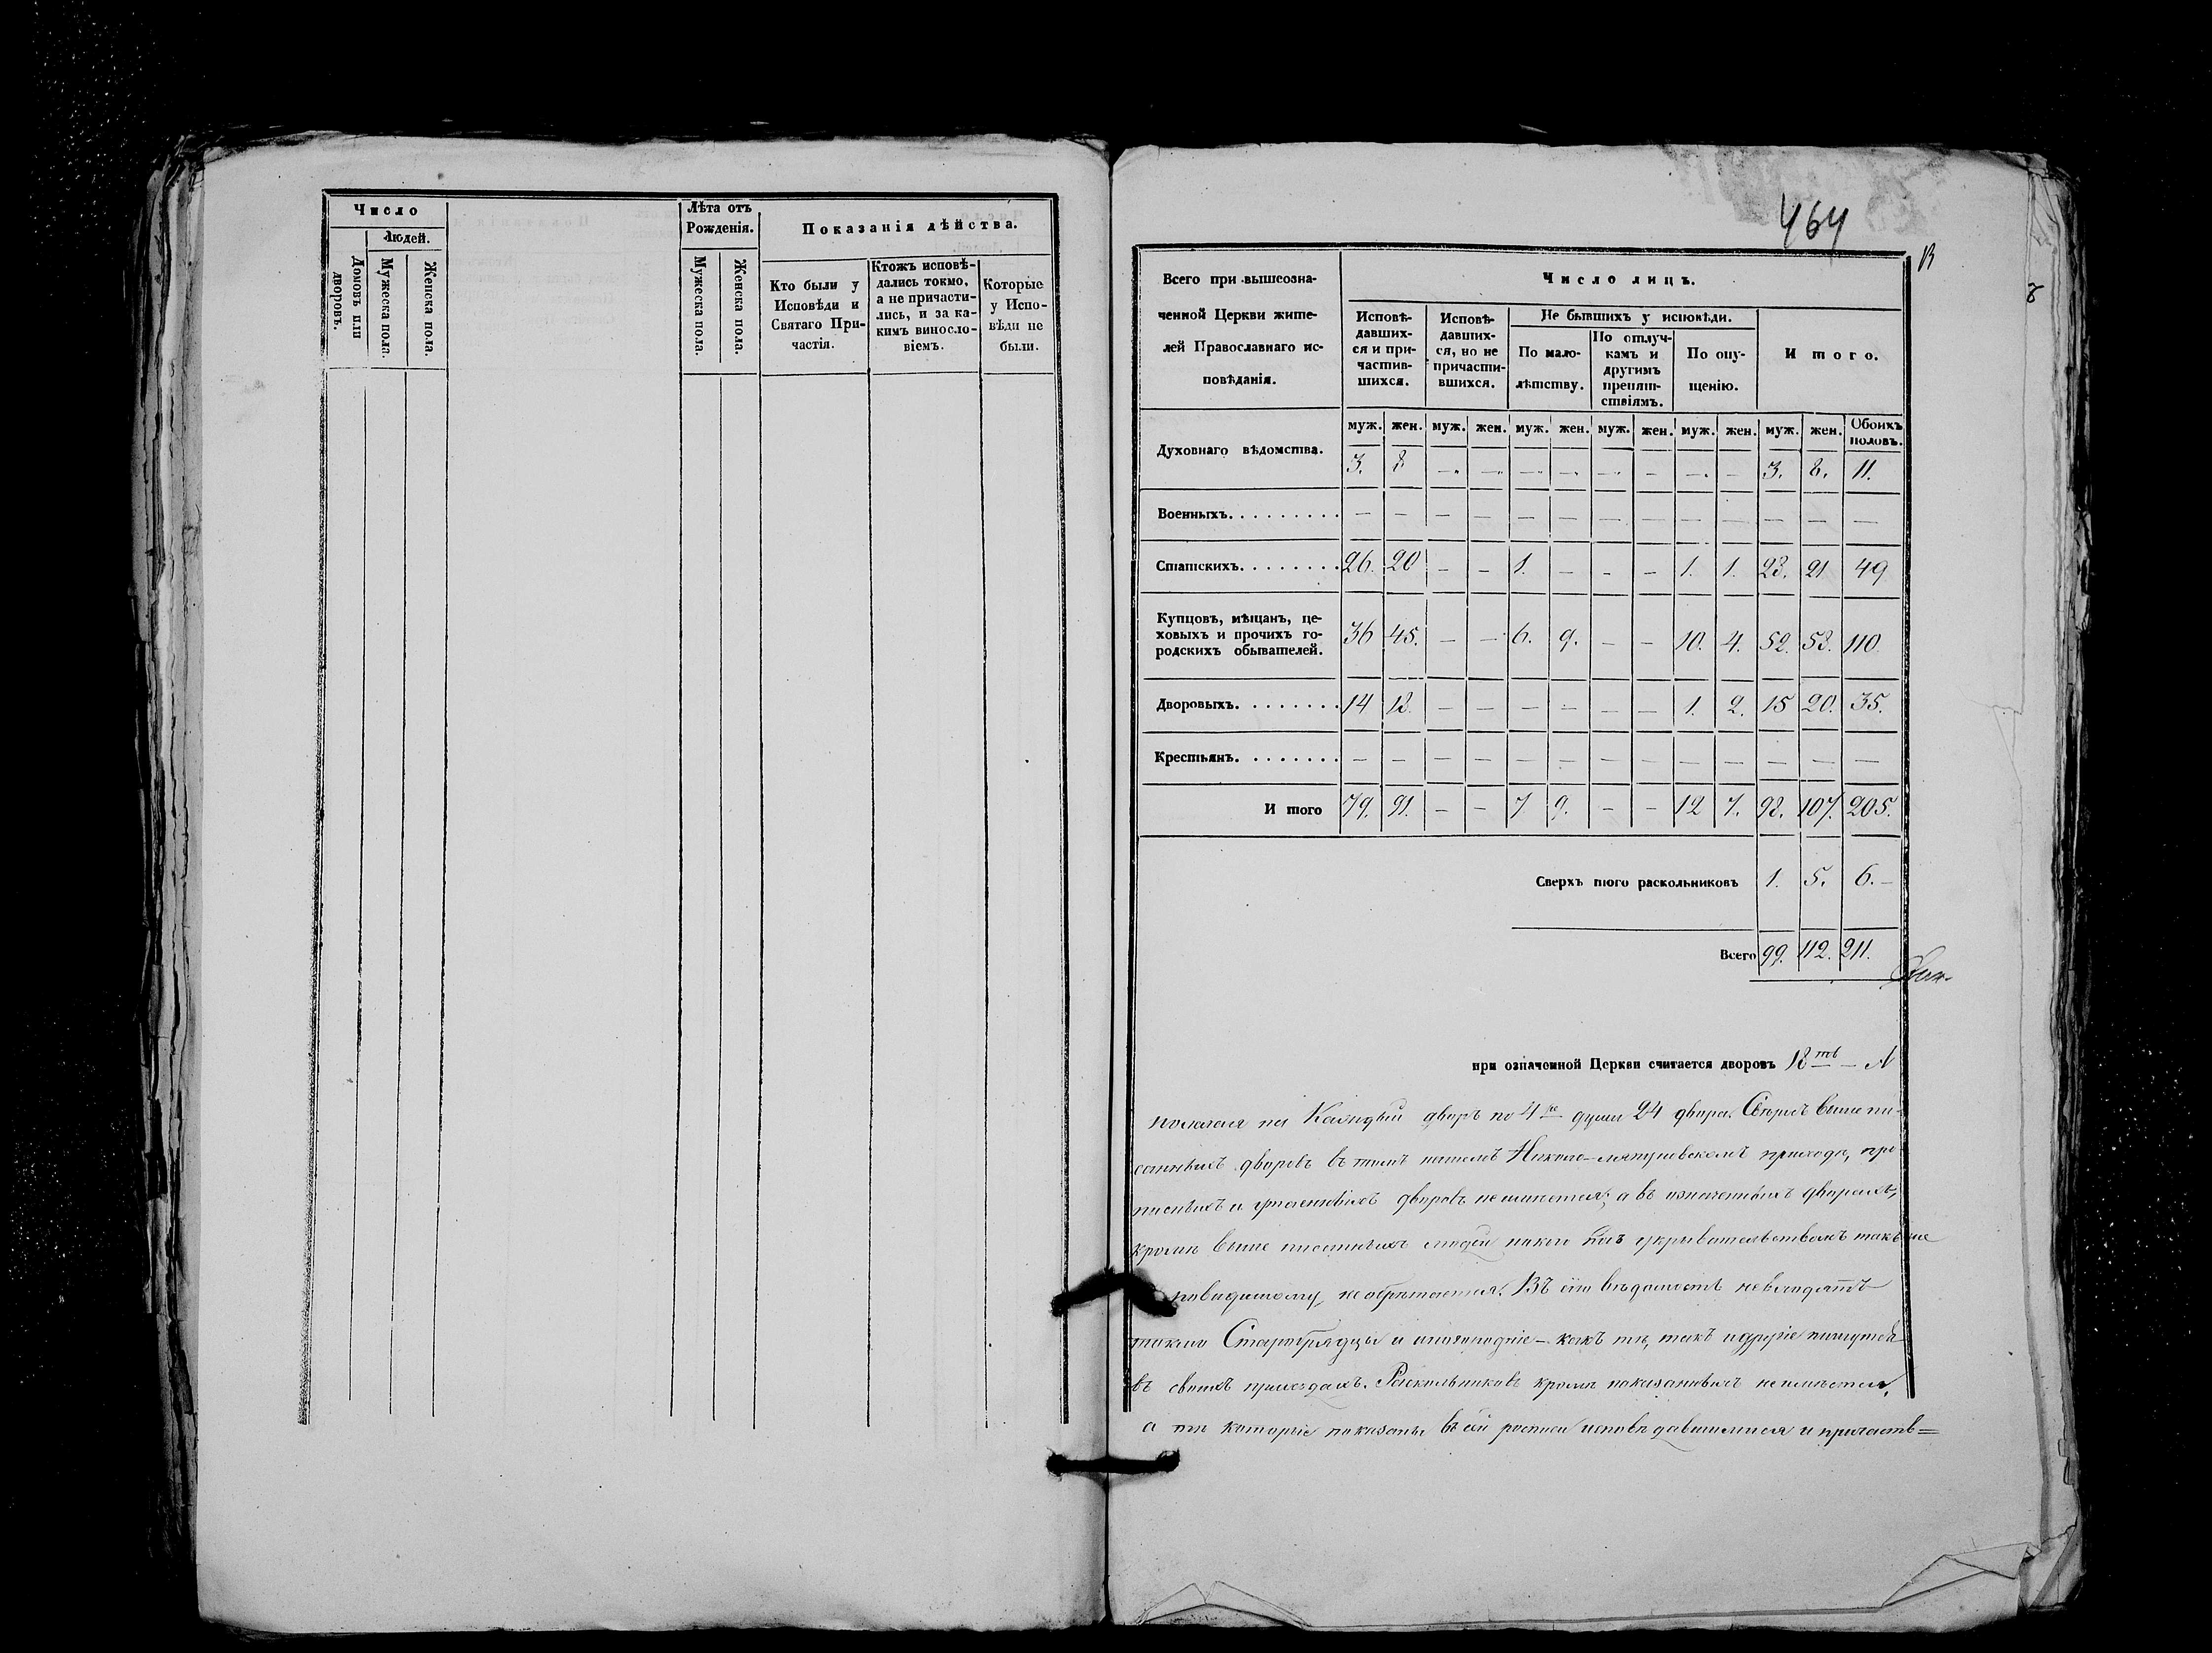 Число
Людей.
Домовъ или дворовъ.
Мужеска пола.
Женска пола.
Лѣта отъ Рожденія.
Мужеска пола.
Женска пола.
Показанія дѣйства.
Кто были у Исповѣди и Святаго При-
частія.
Ктожъ исповѣ-
дались токмо,
а не причасти-
лись, и за ка-
кимъ винослο-
віемъ.
Которые
у Испо-
вѣди не
были.
464
Всего при вышеозна-
ченной Церкви жите-
лей Православнаго ис-
повѣданія.
Число лицъ.
Исповѣ-
давших-
ся и при-
частив-
шихся.
Исповѣ-
давших-
ся, но не
причасти-
вшихся.
Не бывшихъ у исповѣди.
По мало-
лѣтству.
По отлуч-
камъ и
другимъ
препят-
ствіямъ.
По опу-
щенію.
И того.
муж. жен. муж. жен. муж. жен. муж. жен. муж. жен. муж. жен. Обоихъ половъ.
Духовнаго вѣдомства. 3. 8 — — — — — — — — 3. 8. 11.
Военныхъ. — — — — — — — — — — — — —
Статскихъ. 26. 20 — — 1. — — — 1. 1. 28. 21 49
Купцовъ, мѣщанъ, це-
ховыхъ и прочихъ го-
родскихъ обывателей. 36 45. — — 6. 9. — — 10. 4. 52. 58. 110.
Дворовыхъ. 14 18. — — — — — — 1. 2. 15 20. 35.
Крестьянъ. — — — — — — — — — — — — —
И того 79. 91. — — 7 9. — — 12 7. 98. 107. 205.
Сверхъ того раскольниковъ 1. 5. 6.—
Всего 99. 112. 211.
при означенной Церкви считается дворовъ 18
полагая на Каждый дворъ по 4 души 24 двора. Сверхъ выше пи-
санныхъ дворовъ въ томъ нашемъ приходѣ, про-
писныхъ и утаенныхъ дворовъ неимѣется; а въ означенныхъ дворахъ,
кромѣ выше писанныхъ людей никого укрывательствомъ также
повидимому, необрѣтается. Въ сію вѣдомость невходятъ
токмо Старобрядцы и иногородніе — какъ тѣ, такъ идругіе пишутся
въ своихъ приходахъ. Раскольниковъ кромѣ показанныхъ неимѣется,
а тѣ которые показаны въ сей росписи исповѣдавшимися и причаств=